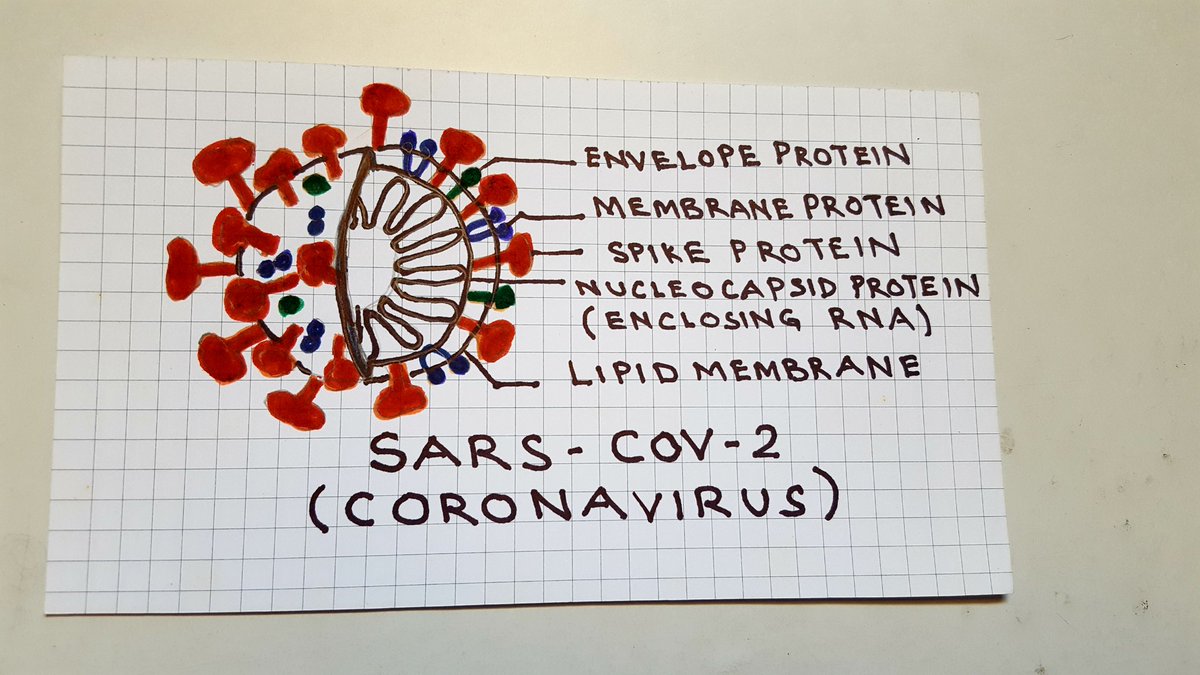 ENVELOPE PROTEIN
MEMBRANE PROTEIN
SPIKE PROTEIN
NUCLEOCAPSID PROTEIN
(ENCLOSING RNA)
LIPID MEMBRANE
SARS-COV-2
(CORONAVIRUS)